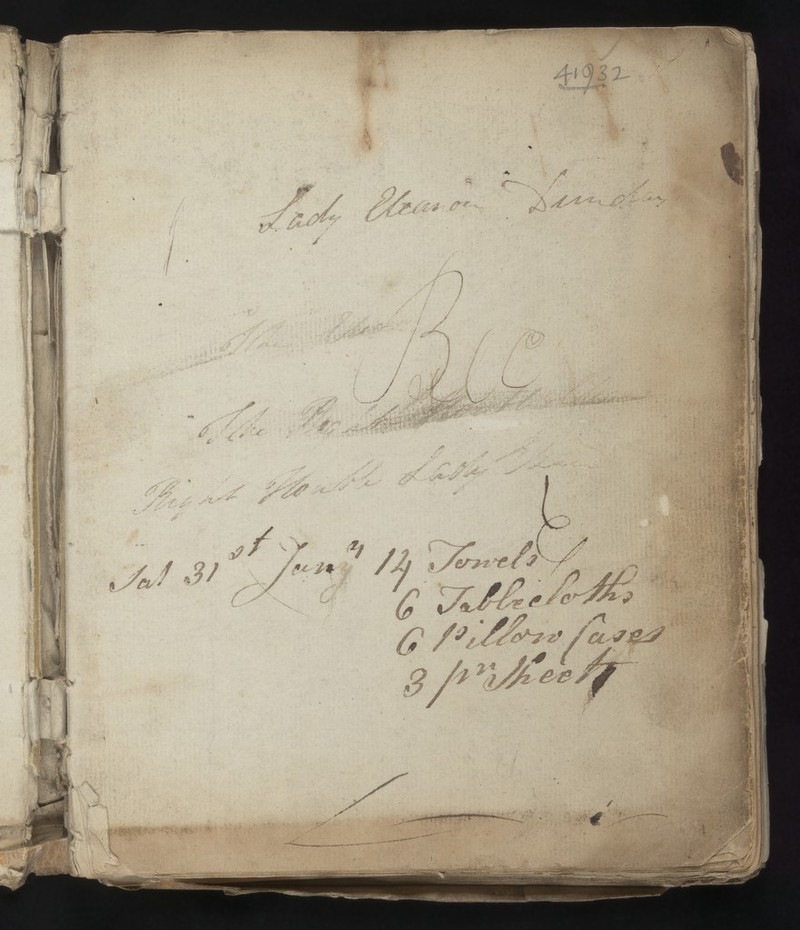 41932
Lady Eleanor Dundas
The
B C
The
Right Honble Lady
Sat 31st Jany 14 Towels
6 Tablecloths
6 Pillow Cases
3 pr Sheets